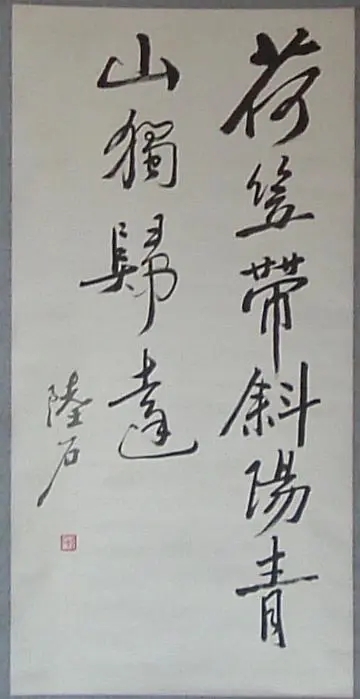 荷笠帶斜陽青
山獨歸遠
陸石